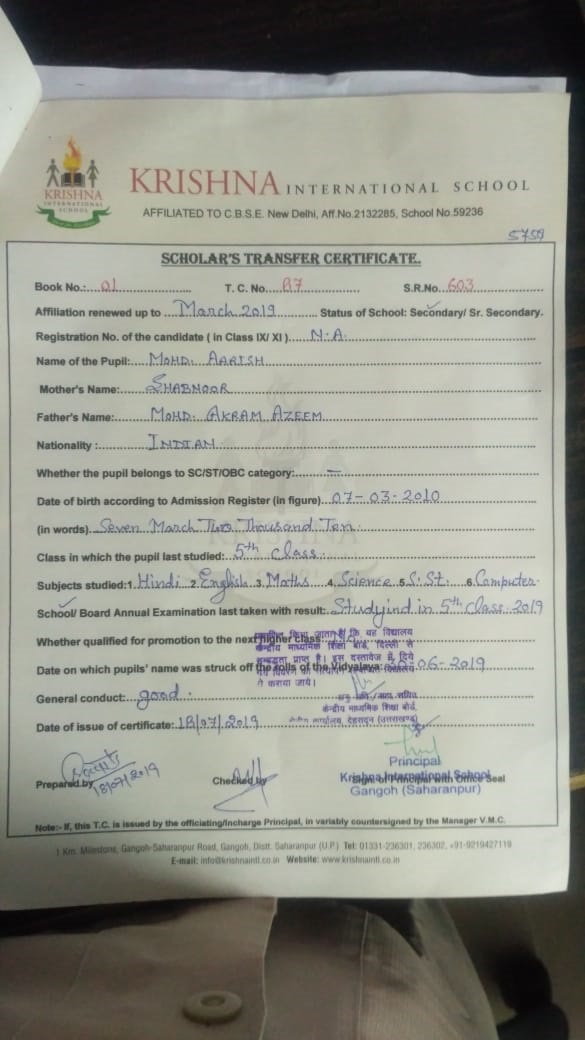 KRISHNA
INTERNATIONAL
SCHOOL
KRISHNA INTERNATIONAL SCHOOL
AFFILIATED TO C.B.S.E. New Delhi, Aff.No.2132285, School No.59236
5759
SCHOLAR'S TRANSFER CERTIFICATE.
Book No.: 01 T. C. No. 87 S.R.No. 603
Affiliation renewed up to March 2019 Status of School: Secondary/ Sr. Secondary.
Registration No. of the candidate ( in Class IX/ XI ) N.A.
Name of the Pupil: MOHD. AARISH
Mother's Name: SHABNOOR
Father's Name: MOHD. AKRAM AZEEM
Nationality : INDIAN
Whether the pupil belongs to SC/ST/OBC category: —
Date of birth according to Admission Register (in figure) 07-03-2010
(in words) Seven March Two Thousand Ten
Class in which the pupil last studied: 5th Class.
Subjects studied:1. Hindi 2. English 3. Maths 4. Science 5. S.St. 6. Computer
School/ Board Annual Examination last taken with result: Studyind in 5th Class 2019
Whether qualified for promotion to the next higher class:
प्रमाणित किया जाता है कि यह विद्यालय
केन्द्रीय माध्यमिक शिक्षा बोर्ड, दिल्ली से
प्राप्त है। इस दस्तावेज में दिये
Date on which pupils' name was struck off the rolls of the Vidyalaya: 06-2019
गये विवरण
से कराया जाये।
General conduct: good.
केन्द्रीय माध्यमिक शिक्षा बोर्ड,
कार्यालय, देहरादून (उत्तराखण्ड)
Date of issue of certificate: 18/07/2019
18/07/2019
Principal
Prepared by Checked by Sign. of Principal with Office Seal
Krishna International School
Gangoh (Saharanpur)
Note:- If, this T.C. is issued by the officiating/Incharge Principal, in variably countersigned by the Manager V.M.C.
1 Km. Milestone, Gangoh-Saharanpur Road, Gangoh, Distt. Saharanpur (U.P.) Tel: 01331-236301, 236302, +91-9219427119
E-mail: info@krishnaintl.co.in Website: www.krishnaintl.co.in